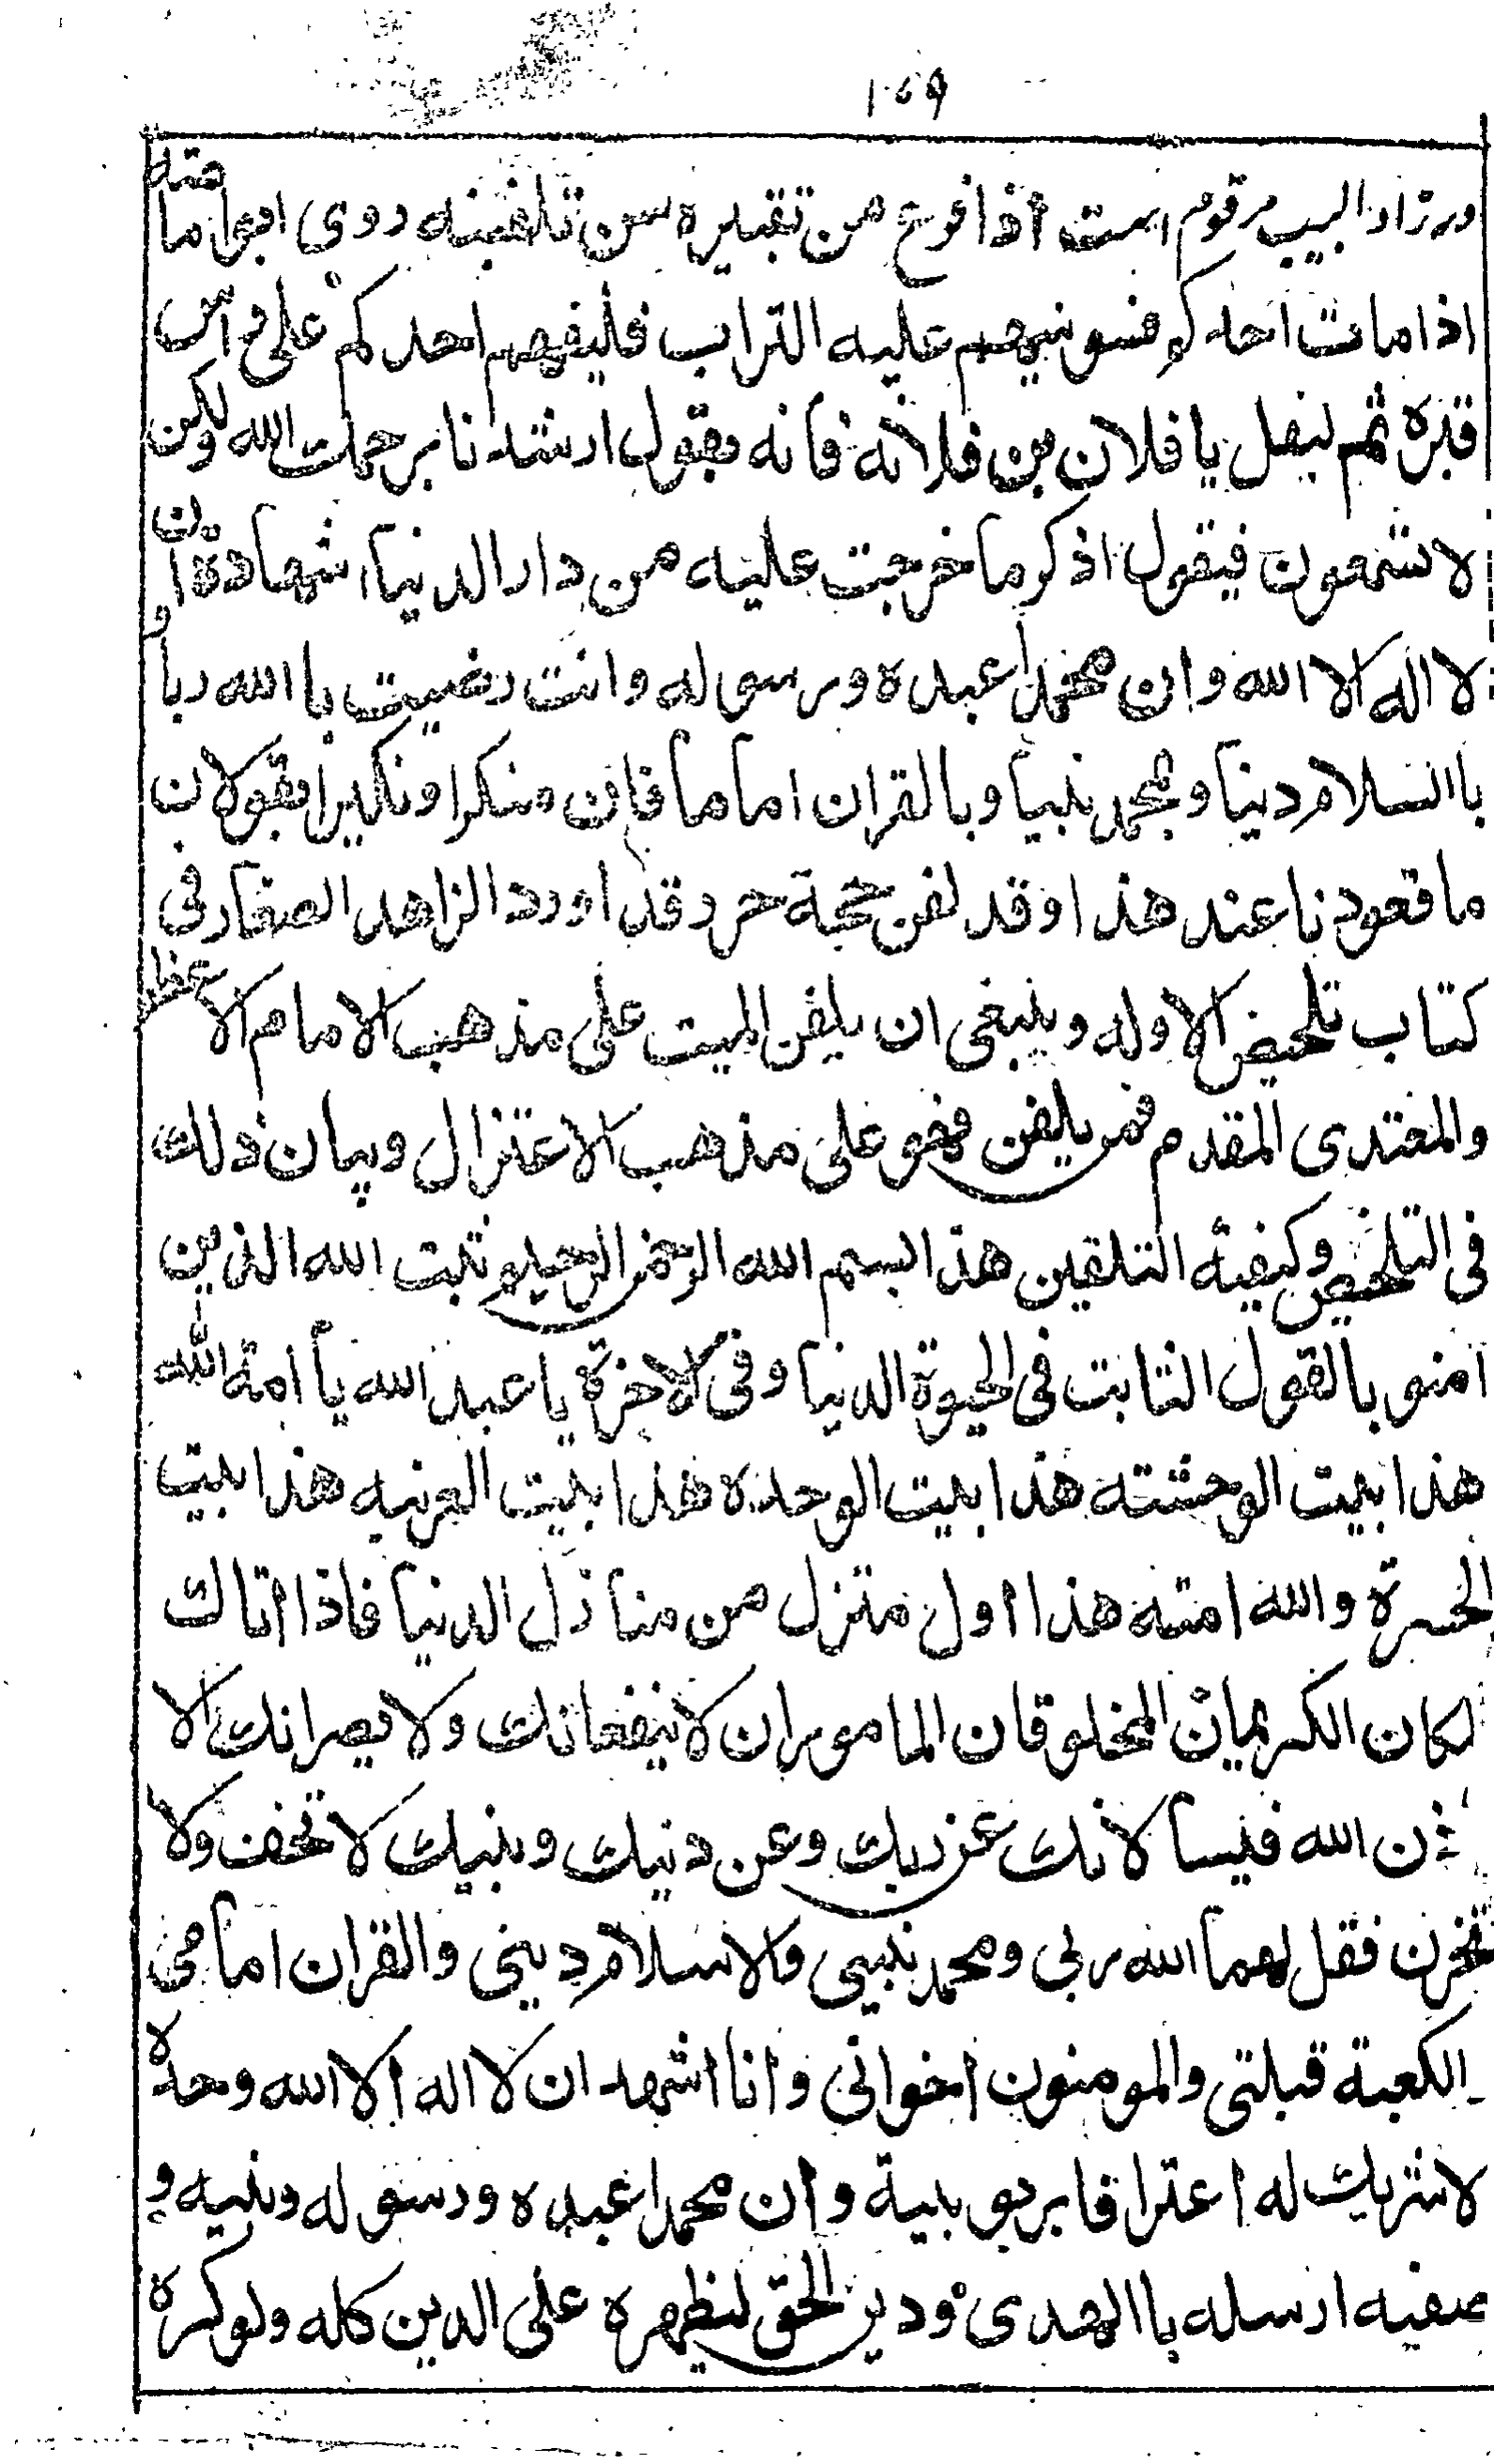 ۱۰۶۹
ورزاد البیب مرقوم است اذا فرغ من تقبیره سن تلقینه روی ابو امامته
اذا مات احدکم فسویتم علیه التراب فلیقم احدکم علی راس
قبره ثم لیقل یا فلان بن فلانه فانه یقول ارشدنا یرحمک الله ولکن
لا تسمعون فیقول اذکر ما خرجت علیه من دار الدنیا شهادة ان
لا اله الا الله وان محمدا عبده ورسوله وانت رضیت با الله ربا و
با السلام دینا وبمحمد نبیا وبالقران اماما فان منکرا ونکیرا یقولان
ما قعودنا عند هذا وقد لقن حجة وقد اورد الزاهد الصفار فی
کتاب تلخیص الاوله وینبغی ان یلقن المیت علی مذهب الامام الاعظم
والمقتدی المقدم فمن یلقن فهو علی مذهب الاعتزال وبیان ذلک
فی التلخیص وکیفیة التلقین هذا بسم الله الرحمن الرحیم یثبت الله الذین
امنو بالقول الثابت فی الحیوة الدنیا وفی الاخرة یا عبد الله یا امة الله
هذا بیت الوحشته هذا بیت الوحده هذا بیت الغربه هذا بیت
الحسرة والله امته هذا اول منزل من منازل الدنیا فاذا اتاک
لکان الکریمان المخلوقان الماموران لا ینفعانک ولا یضرانک الا
ذن الله فیسألانک عن ربک وعن دینک ونبیک لا تخف ولا
تحزن فقل لهما الله ربی ومحمد نبیی والاسلام دینی والقران امامی
الکعبة قبلتی والمومنون اخوانی وانا اشهد ان لا اله الا الله وحده
لا شریک له اعترافا بربوبیة وان محمدا عبده ورسوله ونبیه و
صفیه ارسله با الهدی ودین الحق لیظهره علی الدین کله ولو کره